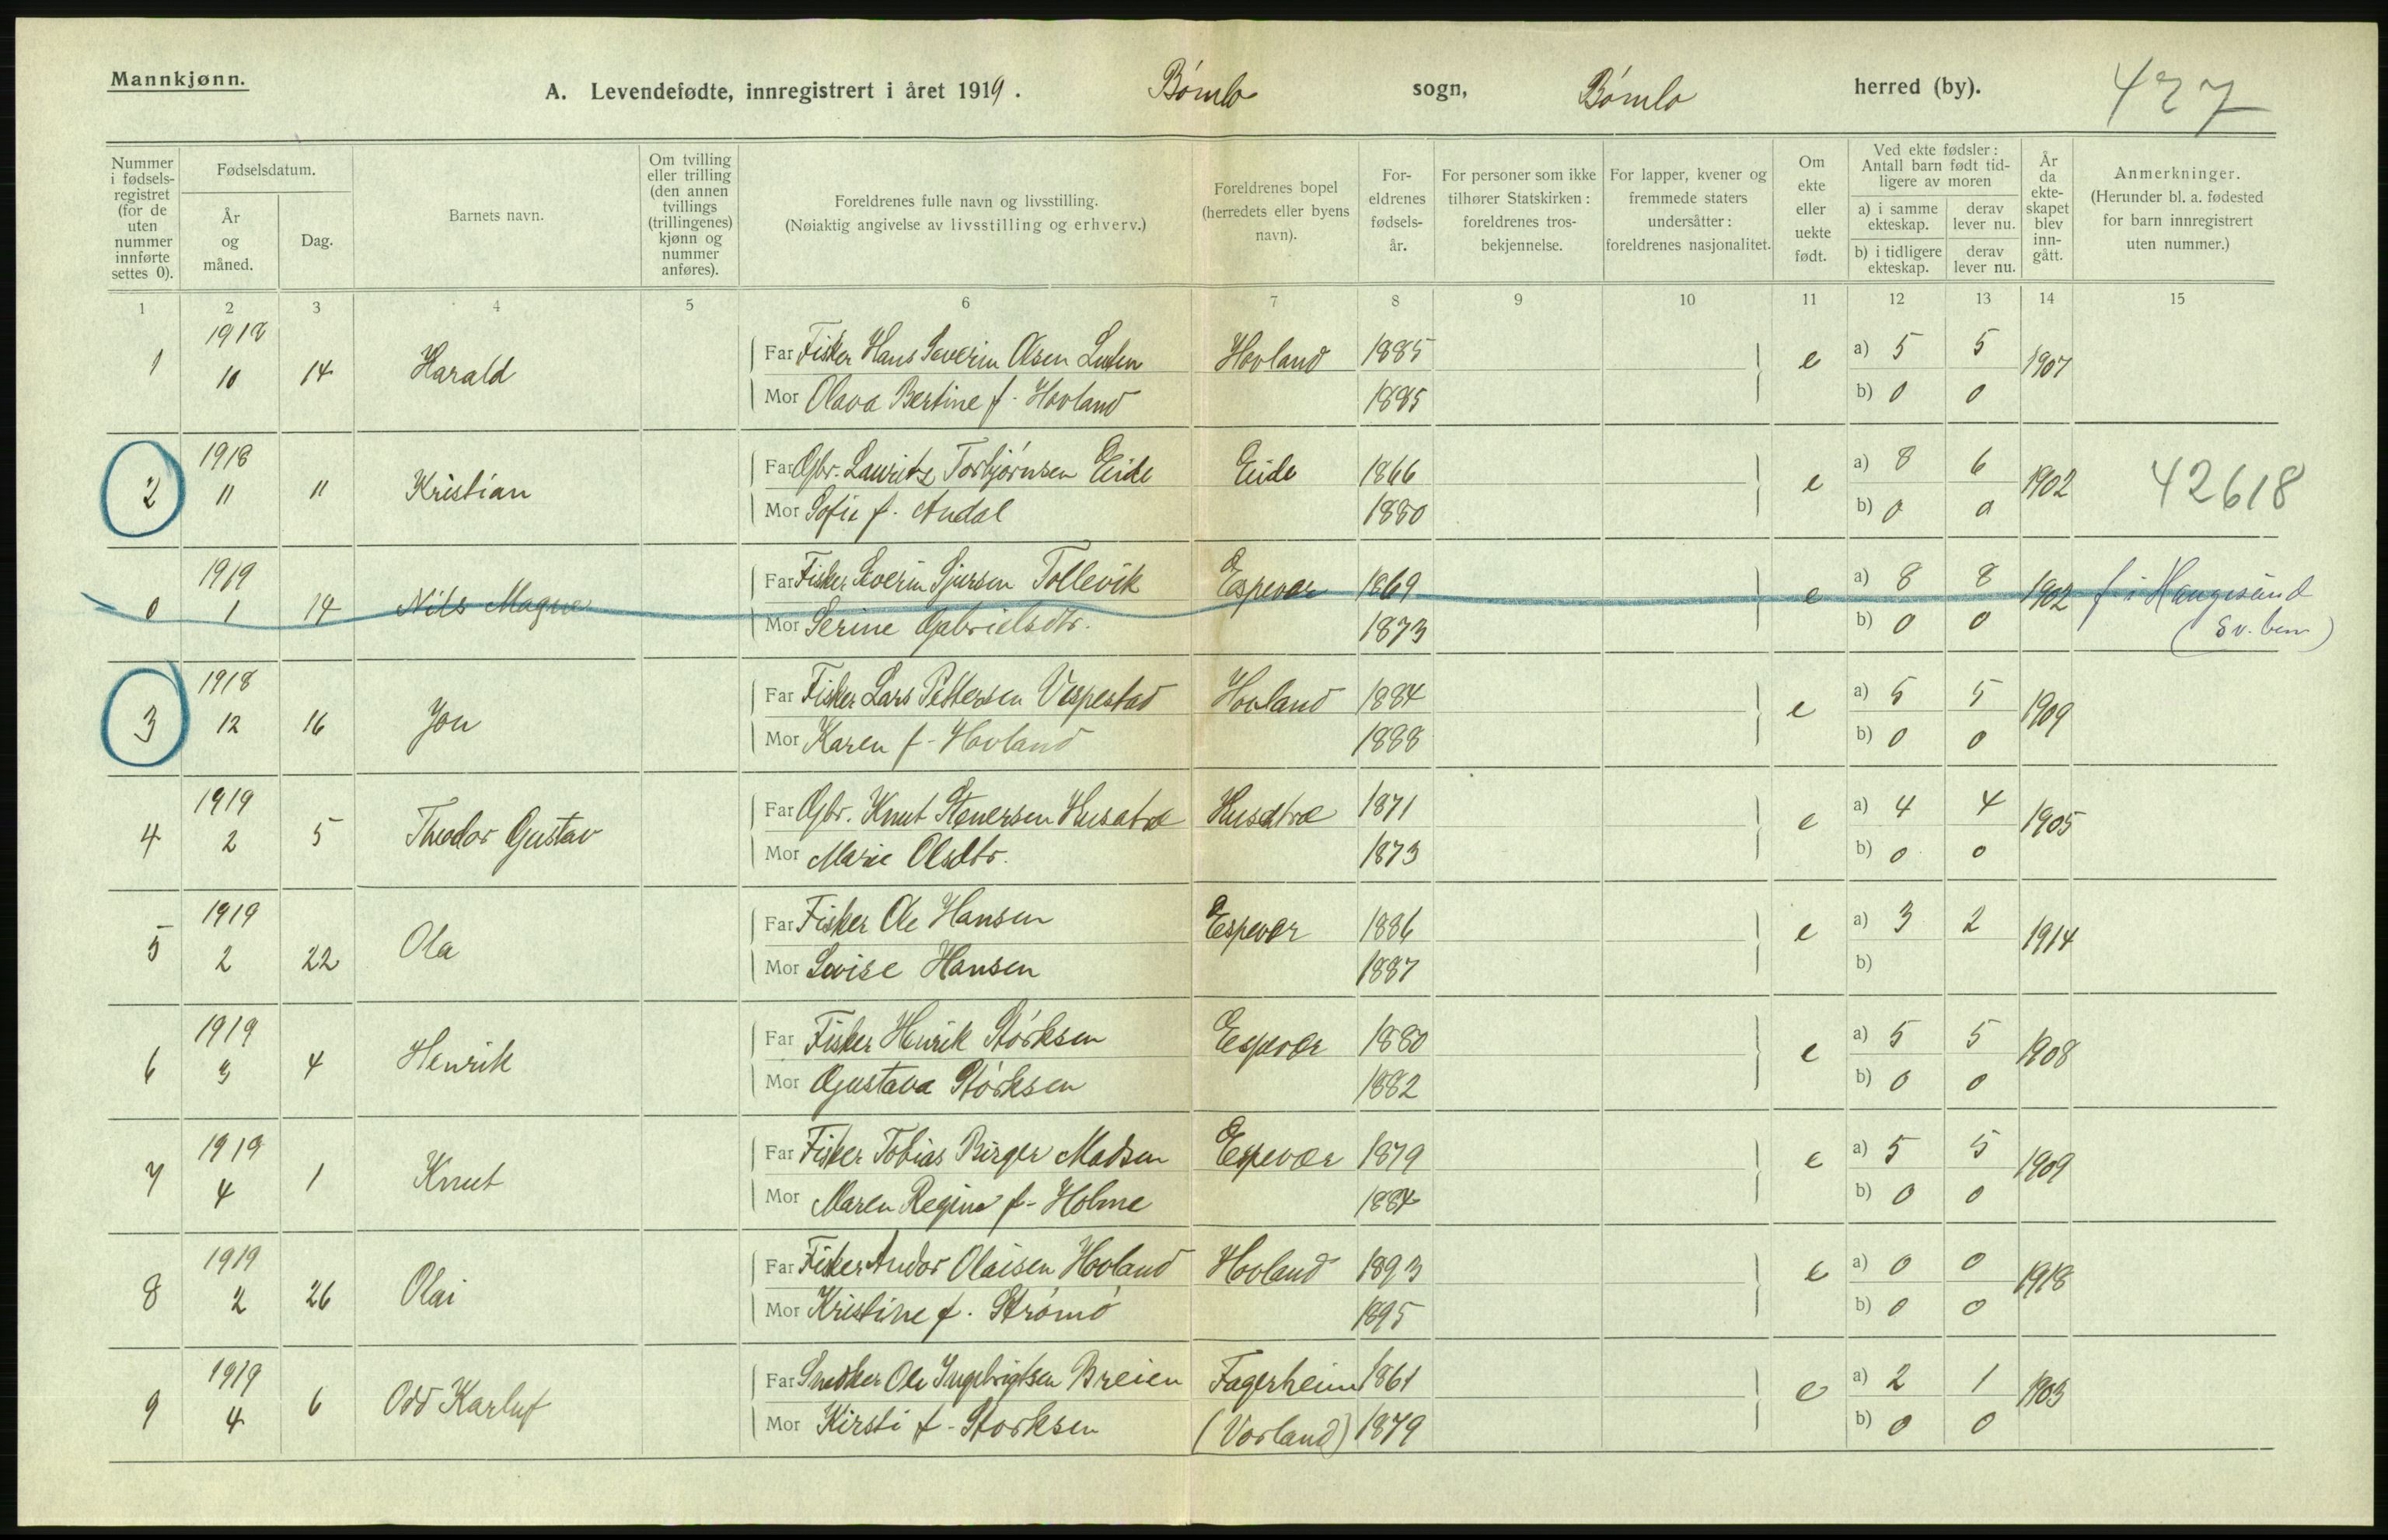 Mannkjønn.
A. Levendefødte, innregistrert i året 1919. Bømlo sogn, Bømlo herred (by). 427
Nummer i fødsels-registret (for de uten nummer innførte settes 0).
Fødselsdatum.
År og måned.
Dag.
Barnets navn.
Om tvilling eller trilling (den annen tvillings (trillingenes) kjønn og nummer anføres).
Foreldrenes fulle navn og livsstilling.
(Nøiaktig angivelse av livsstilling og erhverv.)
Foreldrenes bopel (herredets eller byens navn).
For-eldrenes fødsels-år.
For personer som ikke tilhører Statskirken: foreldrenes tros-bekjennelse.
For lapper, kvener og fremmede staters undersåtter: foreldrenes nasjonalitet.
Om ekte eller uekte født.
Ved ekte fødsler: Antall barn født tid-ligere av moren
a) i samme ekteskap.
derav lever nu.
b) i tidligere ekteskap.
derav lever nu.
År da ekte-skapet blev inn-gått.
Anmerkninger.
(Herunder bl. a. fødested for barn innregistrert uten nummer.)
1 2 3 4 5 6 7 8 9 10 11 12 13 14 15
1 1918 10 14 Harald Far Fisker Hans Severin Olsen Hovland 1885 e a) 5 5 1907
Mor Olava Bertine f. Hovland 1885 b) 0 0
2 1918 11 11 Kristian Far Gbr. Lauritz Torbjørnsen Eide Eide 1866 e a) 8 6 1902 42618
Mor Sofie f. Andal 1880 b) 0 0
0 1919 1 14 Nils Magne Far Fisker Severin Sjursen Tollevik Espevær 1869 e a) 8 8 1902 f i Haugesund
Mor Serine Gabrielsdtr. 1873 b) 0 0 (Sv. bem)
3 1918 12 16 Jon Far Fisker Lars Pettersen Vespestad Hovland 1884 e a) 5 5 1909
Mor Karen f. Hovland 1888 b) 0 0
4 1919 2 5 Theodor Gustav Far Gbr. Knut Stenersen Husatræ Husatræ 1871 e a) 4 4 1905
Mor Marie Olsdtr. 1873 b) 0 0
5 1919 2 22 Ola Far Fisker Ole Hansen Espevær 1886 e a) 3 2 1914
Mor Lovise Hansen 1887 b)
6 1919 3 4 Henrik Far Fisker Henrik Størksen Espevær 1880 e a) 5 5 1908
Mor Gustava Størksen 1882 b) 0 0
7 1919 4 1 Knut Far Fisker Tobias Birger Madsen Espevær 1879 e a) 5 5 1909
Mor Maren Regine f. Holme 1884 b) 0 0
8 1919 2 26 Olai Far Fisker Andor Olaisen Hovland Hovland 1893 e a) 0 0 1918
Mor Kristine f. Strømø 1895 b) 0 0
9 1919 4 6 Odd Karluf Far Snedker Ole Ingebrigtsen Breien Fagerheim 1861 e a) 2 1 1903
Mor Kirsti f. Storksen (Vorland) 1879 b) 0 0